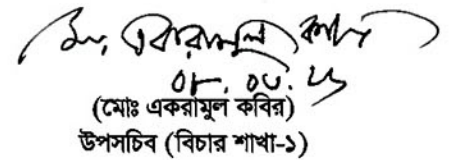 মোঃ একরামুল কবির
০৮. ০৩. ২৬
(মোঃ একরামুল কবির)
উপসচিব (বিচার শাখা-১)